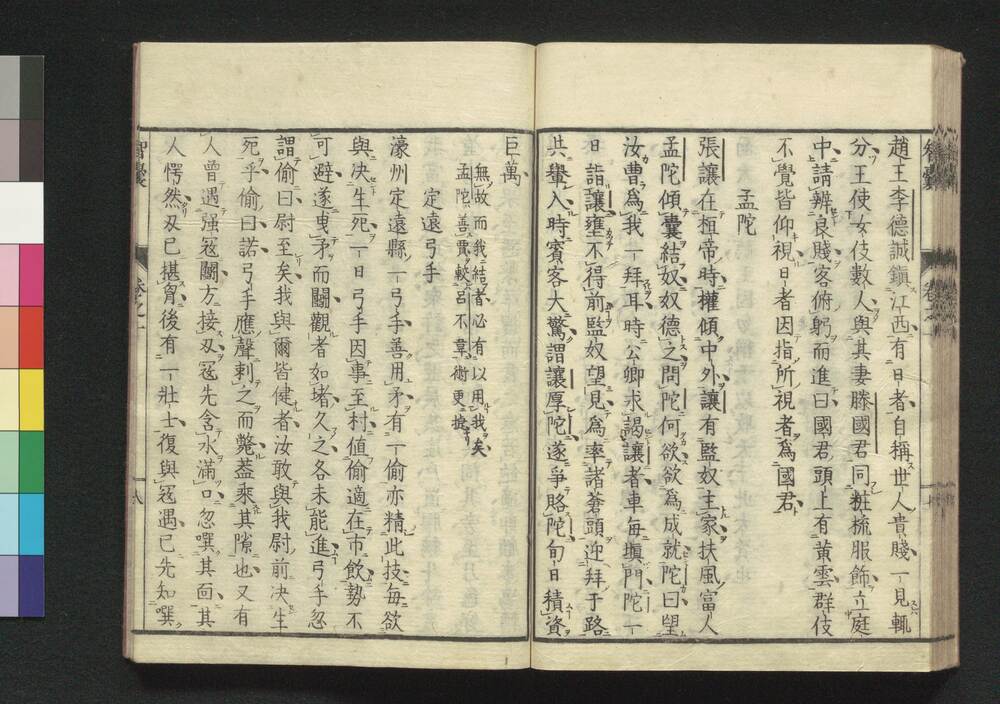 趙王李德誠鎮江西有日者自稱世人貴賤一見輒
分王使女伎數人與其妻滕國君同粧梳服飾立庭
中請辨良賤客俯躬而進曰國君頭上有黃雲群伎
不覺皆仰視日者因指所視者為國君
孟陀
張讓在桓帝時權傾中外讓有監奴主家扶風富人
孟陀傾囊結奴奴德之問陀何欲欲為成就陀曰望
汝曹為我一拜耳時公卿求謁讓者車每塡門陀一
日詣讓壅不得前監奴望見為率諸蒼頭迎拜于路
共轝入時賓客大驚謂讓厚陀遂爭賂陀旬日積資
巨萬
無故而我結者必有以用我矣
孟陀善賈較呂不韋術更捷
定遠弓手
濠州定遠縣一弓手善用矛有一偷亦精此技每欲
與决生死一日弓手因事至村值偷適在市飲勢不
可避遂曳矛而鬪觀者如堵久之各未能進弓手忽
謂偷曰尉至矣我與爾皆健者汝敢與我尉前决生
死乎偷曰諾弓手應聲刺之而斃蓋乘其隙也又有
人曾遇强冦鬪方接刃冦先含水滿口忽噀其面其
人愕然刃已揕胷後有一壯士復與冦遇已先知噀
智囊
卷之十
八